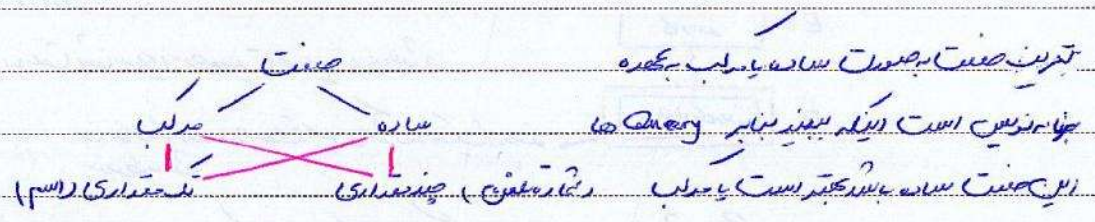 تعریف صفت به صورت ساده یا مرکب به عهده
برنامه نویس است اینکه ببیند بنابر Query ها
این صفت ساده باشد بهتر است یا مرکب
صفت
ساده مرکب
(شماره تلفن) چندمقداری تک مقداری (اسم)